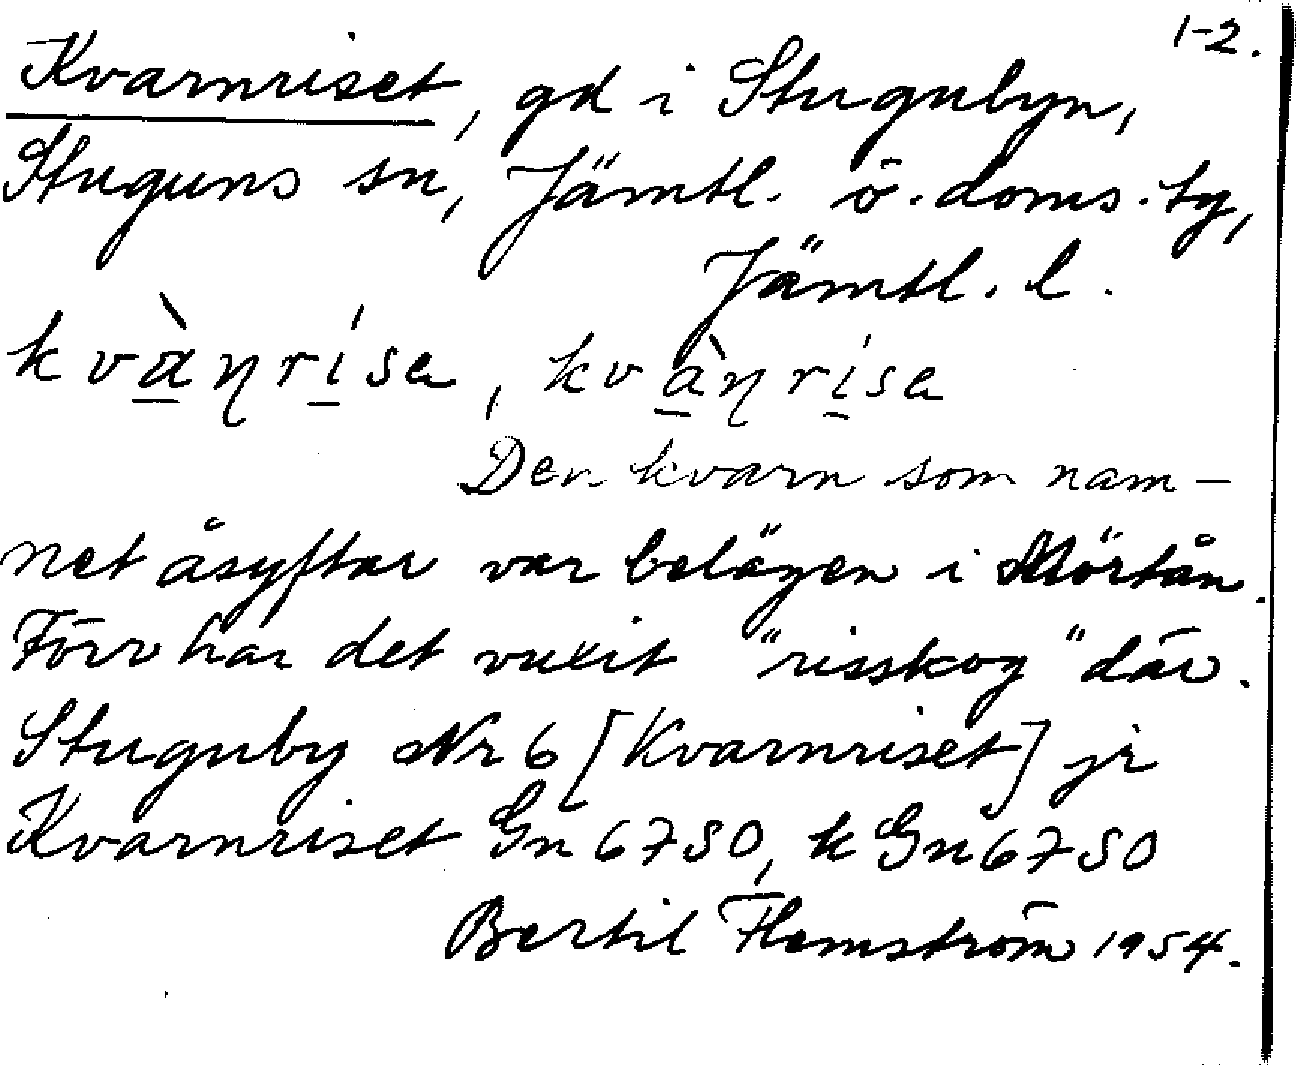 1-2.
Kvarnriset, gd i Stugubyn,
Stuguns sn, Jämtl. ö. doms. tg,
Jämtl. l.
kvàŋrísa, kvàŋrísa
Den kvarn som nam-
net åsyftar var belägen i Mörtån.
Förr har det vuxit "risskog" där.
Stuguby Nr 6 [Kvarnriset] jr
Kvarnriset Gn 6750, k Gn 6750
Bertil Flemström 1954.